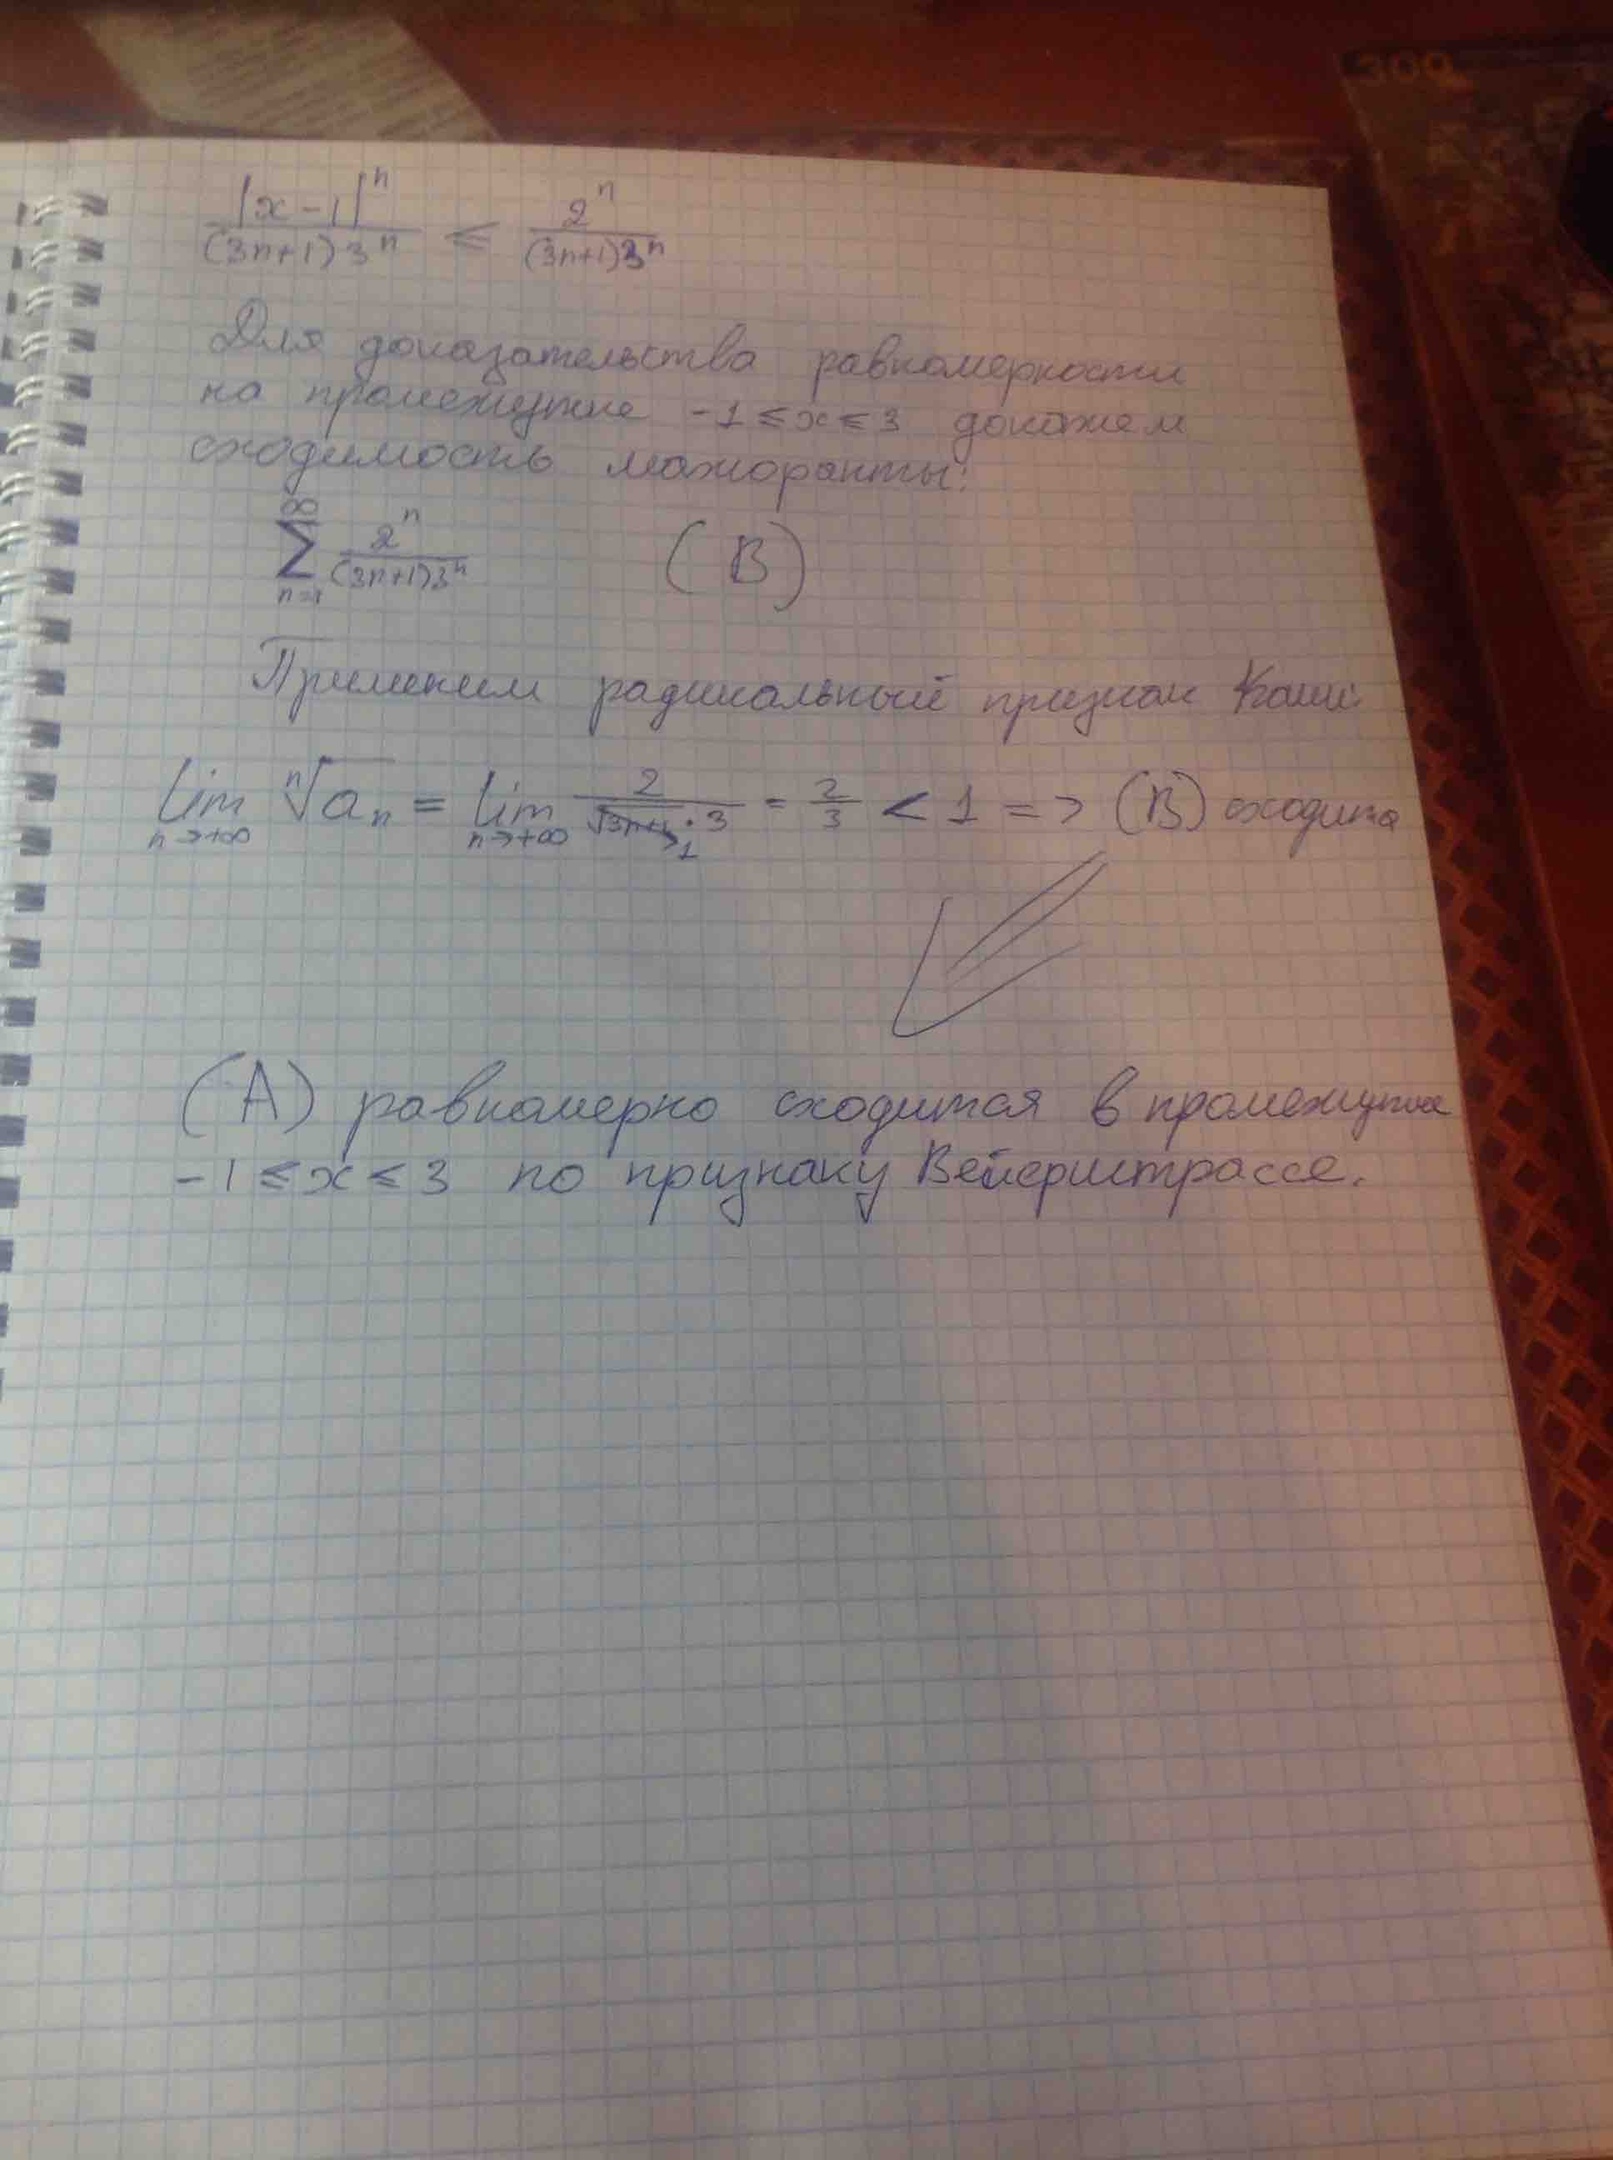 |x-1|^n / (3n+1)3^n ≤ 2^n / (3n+1)3^n
Для доказательства равномерности
на промежутке -1 ≤ x ≤ 3 докажем
сходимость мажоранты:
∞ ∑ n=1 2^n / (3n+1)3^n (B)
Применим радикальный признак Коши:
lim n→+∞ ⁿ√aₙ = lim n→+∞ 2 / ⁿ√3n+1 →1 · 3 = 2/3 < 1 => (B) сходится
(A) равномерно сходится в промежутке
-1 ≤ x ≤ 3 по признаку Вейерштрасса.
300